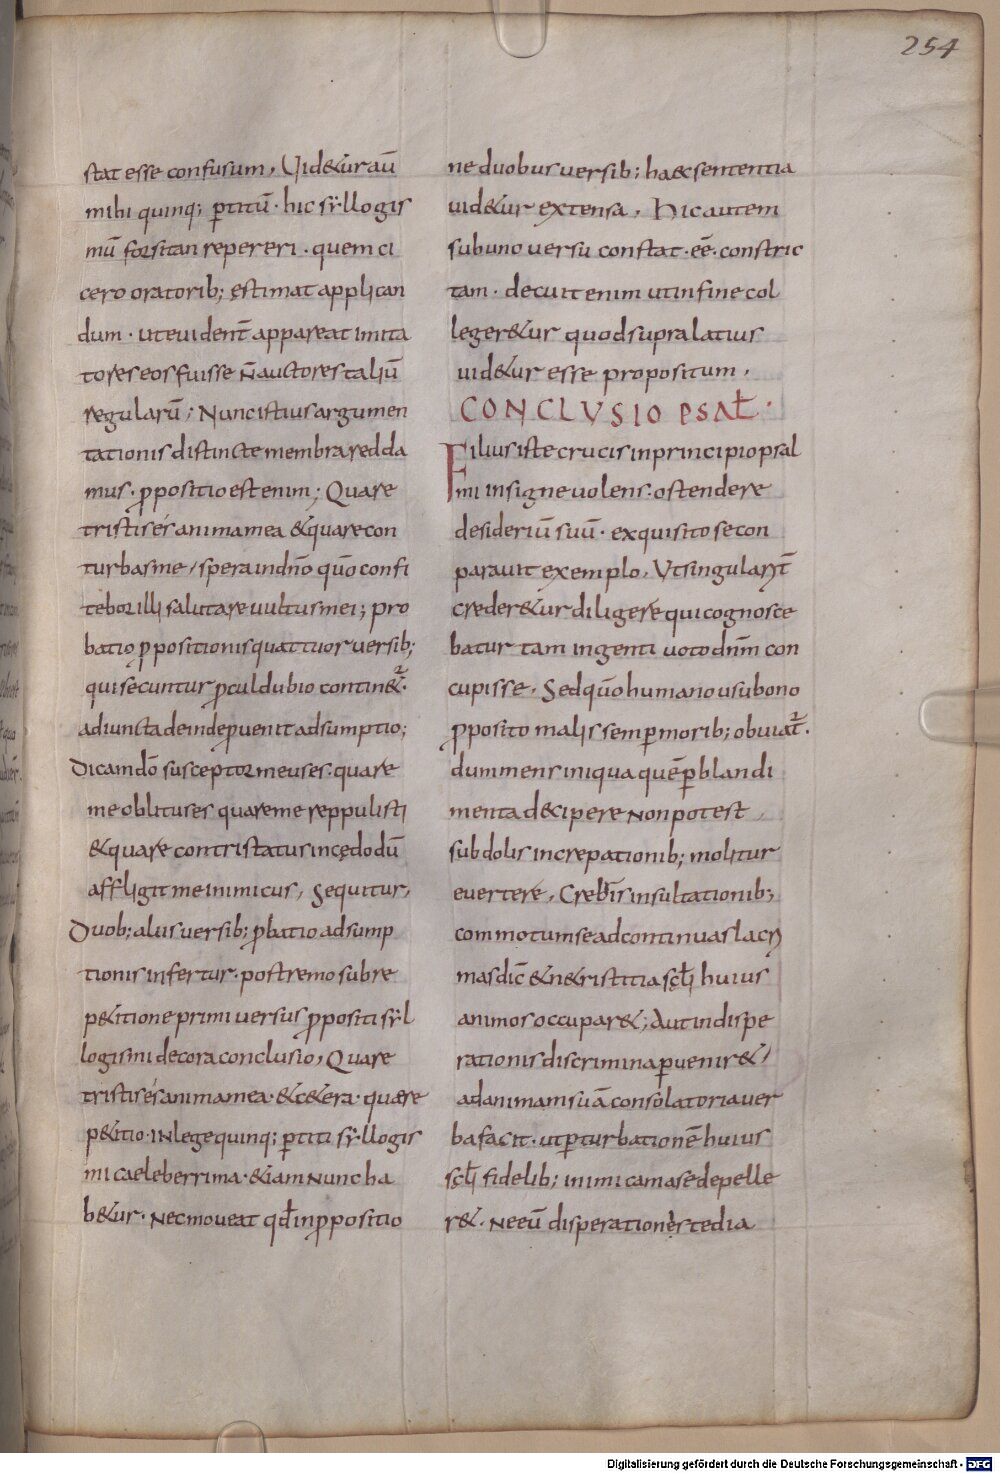 254
stat esse confusum, Uidetur aū
mihi quinq; ꝑtitū · hic sẏllogis
mū forsitan repereri · quem ci
cero oratorib; ęstimat applican
dum · ut euident̄ appareat imita
tores eos fuisse n̄ auctores taliū
regularū; Nunc istius argumen
tationis distincte membra redda
mus · ꝓpositio est enim; Quare
tristis és anima mea & quare con
turbas me, spera in dn̄o qūo confi
tebor illi salutare uultus mei; pro
batio ꝓpositionis quattuor uersib;
qui secuntur ꝓcul dubio contin&ur·
adiuncta deinde ꝑuenit adsumptio;
Dicam dō susceptor meus es · quare
me oblitus es quare me reppulisti
& quare contristatus incędo dū
affligit me inimicus, Sequitur,
Duob; aliis uersib; ꝓbatio adsump
tionis infertur · postremo sub re
p&itione primi uersus ꝓpositi sẏl
logismi decora conclusio, Quare
tristis és anima mea · & c&era · quære
p&itio · in lege quinq; ꝑtiti sẏllogis
mi caeleberrima · &iam nunc ha
b&ur · Nec moueat qđ in ꝓpositio
ne duobus uersib; haec sententia
uid&ur extensa, Hic autem
sub uno uersu constat · eē · constric
tam · decuit enim ut in fine col
leger&ur quod supra latius
uid&ur esse propositum,
CONCLUSIO PSAŁ·
Filius iste crucis in principio psal
mi insigne uolens · ostendere
desideriū suū · exquisito se con
parauit exemplo, Ut singularit̄
creder&ur diligere qui cognosce
batur tam ingenti uoto dn̄m con
cupisse, Sed qūo humano usu bono
ꝓposito malis semꝑ morib; obuiat̄ur·
dum mens iniqua quē ꝑ blandi
menta decipere non potest,
subdolis increpationib; molitur
euertere, Creb̄ris insultationib;
commotum se ad continuas lacri
mas dic̄ & ne tristitia sc̄łi huius
animos occupar&; Aut in dispe
rationis discrimina ꝑuenir&,
ad animam suā consolatoria uer
ba facit · ut ꝑturbationē huius
sc̄łi fidelib; inimicam a se depelle
r& · Ne eū disperationes tedia
Digitalisierung gefördert durch die Deutsche Forschungsgemeinschaft - DFG